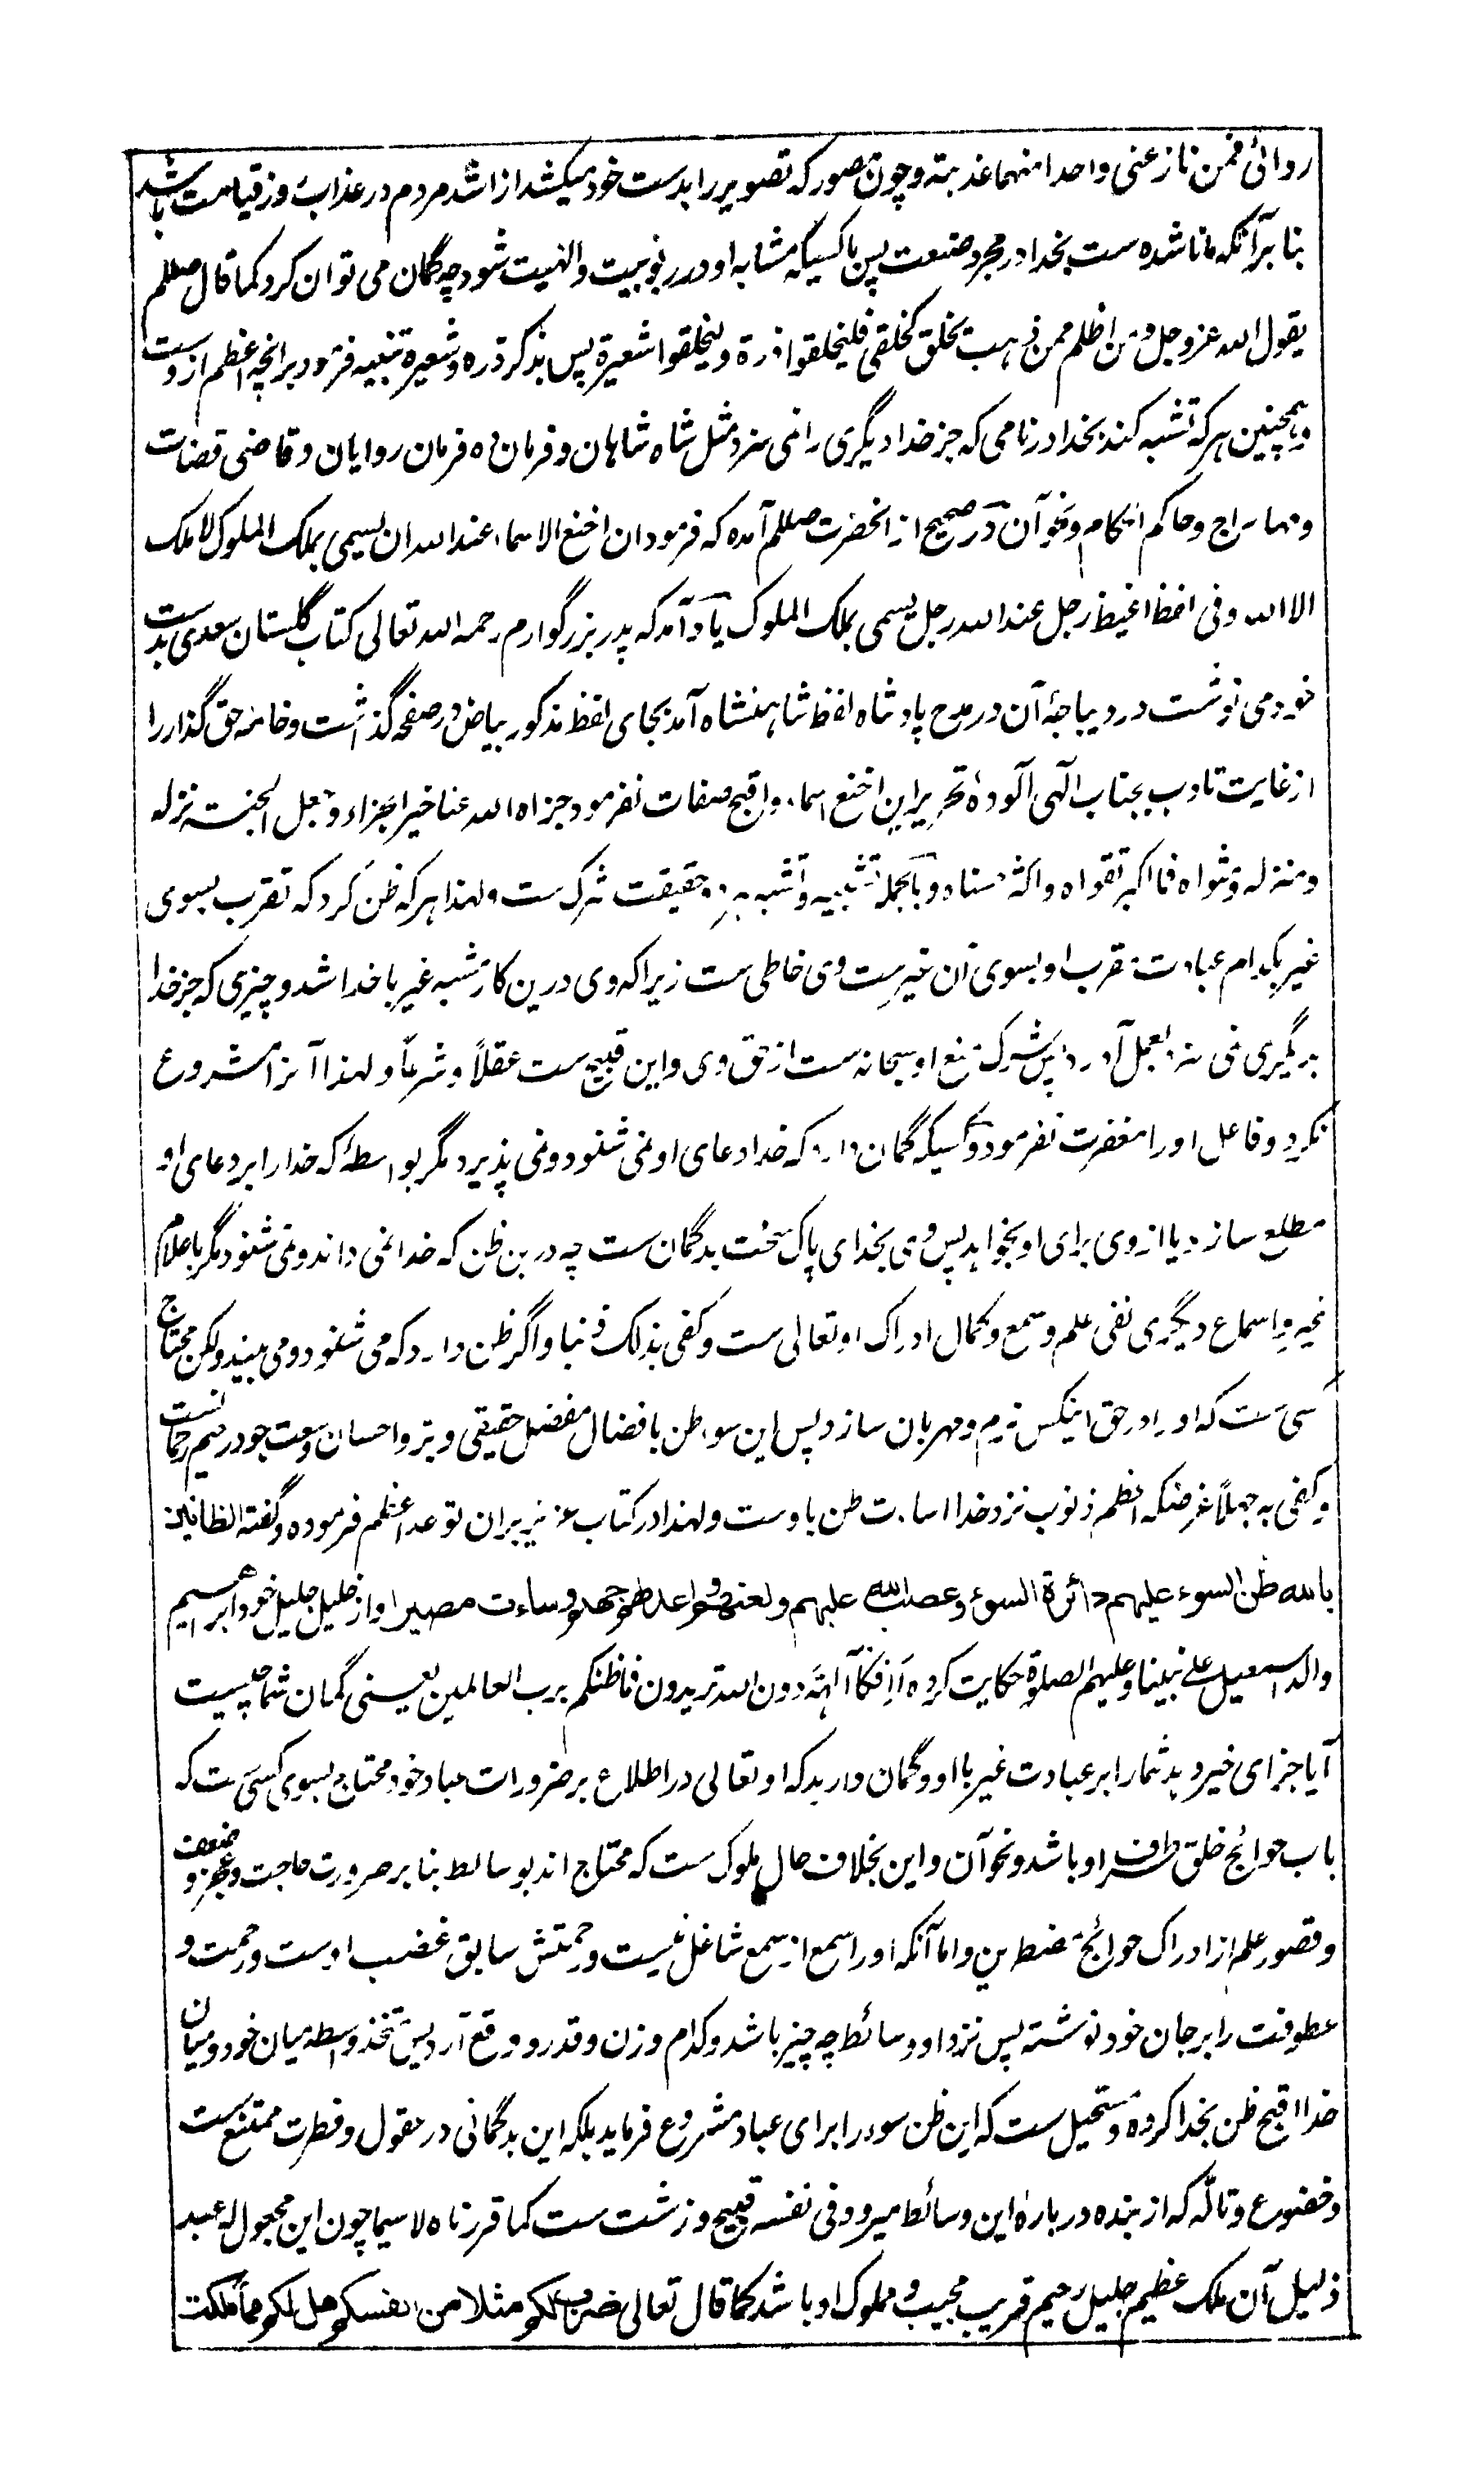 ردائی فمن نازعنی واحدا منهما عذبته و چون مصور که تصویر را بدست خود میکشد از اشد مردم در عذاب روز قیامت باشد
بنا برآنکه مانا شده ست بخدا در مجرد صنعت پس با کسیکه مشابه او در ربوبیت و الهیت شود چه گمان می توان کرد کما قال صلعم
یقول الله عز و جل و من اظلم ممن ذهب یخلق کخلقی فلیخلقوا ذرة و لیخلقوا شعیرة پس بذکر ذره و شعیره تنبیه فرمود بر انچه اعظم ازوست
و همچنین هر که تشبه کند بخدا در نامی که جز خدا دیگری را نمی سزد مثل شاه شاهان و فرمان ده فرمان روایان و قاضی قضات
و مهاراج و حاکم احکام و نحو آن در صحیح از انحضرت صلعم آمده که فرمود ان اخنع الاسماء عند الله ان یسمی بملک الملوک لا ملک
الا الله و فی لفظ اغیظ رجل عند الله رجل یسمی بملک الملوک یاد آمد که پدر بزرگوارم رحمه الله تعالی کتاب گلستان سعدی بدست
خود می نوشت در دیباجهٔ آن در مدح پادشاه لفظ شاهنشاه آمد بجای لفظ مذکور بیاض در صفحه گذاشت و خامهٔ حق گذار را
از غایت تادب بجناب الٓهی آلودهٔ تحریر این اخنع اسماء و اقبح صفات نفرمود جزاه الله عنا خیر الجزاء و جعل الجنة نزله
و منزله و مثواه فما اکبر تقواه و اکثر حسناه و بالجمله تشبیه و تشبه به در حقیقت شرک ست و لهذا هر که ظن کرد که تقرب بسوی
غیر بکدام عبادت تقرب او بسوی آن غیرست وی خاطی ست زیرا که وی درین کار مشبه غیر با خدا شد و چیزی که جز خدا
بدیگری نمی سزد بعمل آورد پس شرک منع او سبحانه ست از حق وی و این قبیح ست عقلاً و شرعاً و لهذا آنرا مشروع
نکرد و فاعل او را مغفرت نفرمود و کسیکه گمان دارد که خدا دعای او نمی شنود و نمی پذیرد مگر بواسطهٔ که خدا را بر دعای او
مطلع سازد یا از وی برای او بخواهد پس وی بخدای پاک سخت بدگمان ست چه درین ظن که خدا نمی داند و نمی شنود مگر باعلام
غیر و اسماع دیگری نفی علم و سمع و کمال ادراک او تعالی ست و کفی بذلک ذنبا و اگر ظن دارد که می شنود و می بیند ولکن محتاج
کسی ست که او را در حق اینکس نرم و مهربان سازد پس این سوء ظن بافضال مفضل حقیقی و بر و احسان و سعت جود رحیم رحمانست
و کفی به جهلاً غرضکه اعظم ذنوب نزد خدا اساءت ظن باوست و لهذا در کتاب عزیز بران توعد اعظم فرموده و گفته الظانین
بالله ظن السوء علیهم دائرة السوء و غضب الله علیهم و لعنهم و اعد لهم جهنم و ساءت مصیرا و از خلیل جلیل خود ابراهیم
والد اسمعیل علی نبینا و علیهم الصلوة حکایت کرده أئفکا آلهة دون الله تریدون فما ظنکم برب العالمین یعنی گمان شما چیست
آیا جزای خیر دهد شما را بر عبادت غیر با او و گمان دارید که او تعالی در اطلاع بر ضرورات عباد خود محتاج بسوی کسی ست که
باب حوائج خلق طرف او باشد و نحو آن و این بخلاف حال ملوک ست که محتاج اند بوسائط بنا بر ضرورت حاجت و عجز و ضعف
و قصور علم از ادراک حوائج مضطرین و اما آنکه او را سمع از سمع شاغل نیست و رحمتش سابق غضب اوست و رحمت و
عطوفت را بر جان خود نوشته پس نزد او وسائط چه چیز باشد و کدام وزن و قدر و وقع آرد پس متخذ واسطه میان خود و میان
خدا اقبح ظن بخدا کرده و مستحیل ست که این ظن سوء را برای عباد مشروع فرماید بلکه این بدگمانی در عقول و فطرت ممتنع ست
و خضوع و تاله که از بنده در بارهٔ این وسائط میرود فی نفسه قبیح و زشت ست کما قررناه لا سیما چون این مجعول له عبد
ذلیل آن ملک عظیم جلیل رحیم قریب مجیب و مملوک او باشد کما قال تعالی ضرب لکم مثلا من انفسکم هل لکم مما ملکت